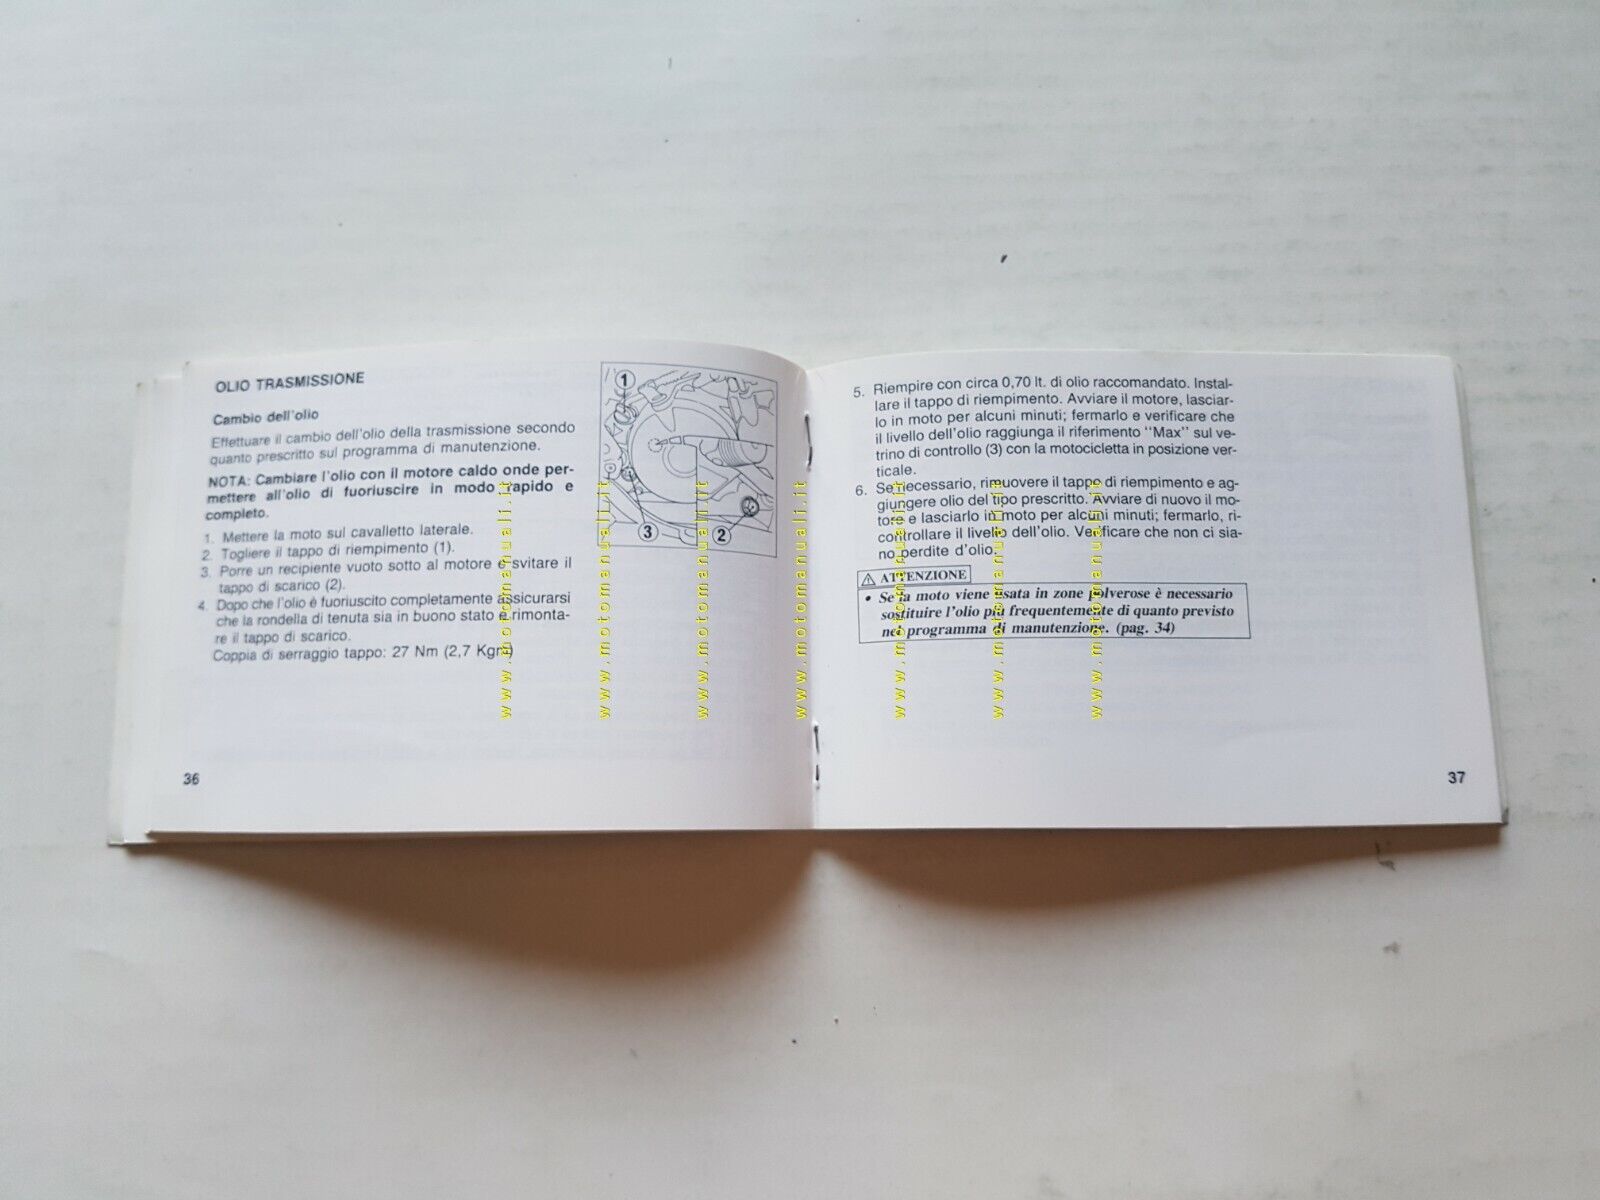 OLIO TRASMISSIONE
Cambio dell'olio
Effettuare il cambio dell'olio della trasmissione secondo
quanto prescritto sul programma di manutenzione.
NOTA: Cambiare l'olio con il motore caldo onde per-
mettere all'olio di fuoriuscire in modo rapido e
completo.
1. Mettere la moto sul cavalletto laterale.
2. Togliere il tappo di riempimento (1).
3. Porre un recipiente vuoto sotto al motore e svitare il
tappo di scarico (2).
4. Dopo che l'olio è fuoriuscito completamente assicurarsi
che la rondella di tenuta sia in buono stato e rimonta-
re il tappo di scarico.
Coppia di serraggio tappo: 27 Nm (2,7 Kgm)
1
3
2
36
5. Riempire con circa 0,70 lt. di olio raccomandato. Instal-
lare il tappo di riempimento. Avviare il motore, lasciar-
lo in moto per alcuni minuti; fermarlo e verificare che
il livello dell'olio raggiunga il riferimento "Max" sul ve-
trino di controllo (3) con la motocicletta in posizione ver-
ticale.
6. Se necessario, rimuovere il tappo di riempimento e ag-
giungere olio del tipo prescritto. Avviare di nuovo il mo-
tore e lasciarlo in moto per alcuni minuti; fermarlo, ri-
controllare il livello dell'olio. Verificare che non ci sia-
no perdite d'olio.
ATTENZIONE
• Se la moto viene usata in zone polverose è necessario
sostituire l'olio più frequentemente di quanto previsto
nel programma di manutenzione. (pag. 34)
37
www.motomanuali.it
www.motomanuali.it
www.motomanuali.it
www.motomanuali.it
www.motomanuali.it
www.motomanuali.it
www.motomanuali.it